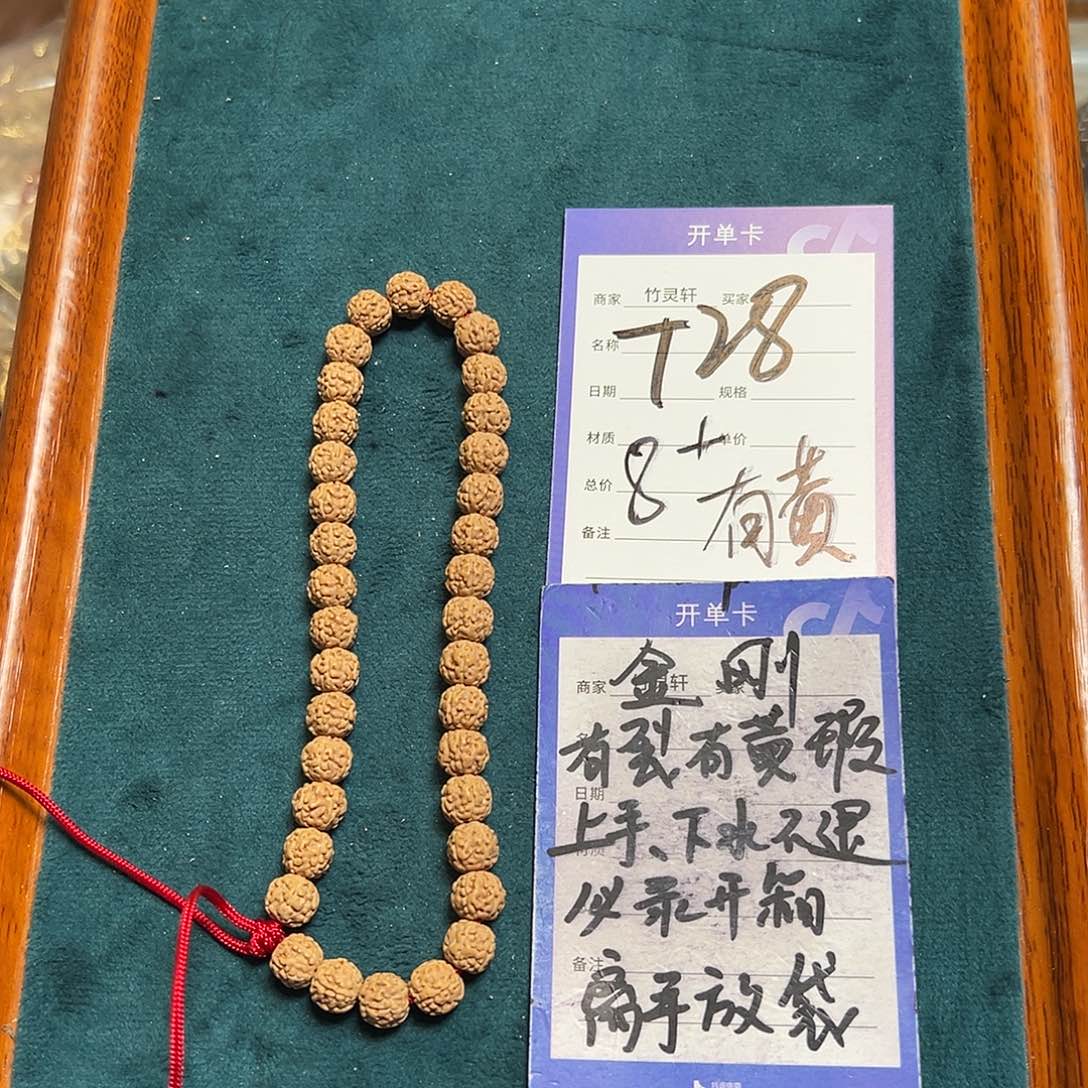 开单卡
商家 竹灵轩 买家
T28
名称
日期 规格
材质 单价
8+
总价
有黄
备注
开单卡
商家 轩
金刚
有裂有黄瑕
日期
上手、下水不退
必录开箱
备注
离手放袋